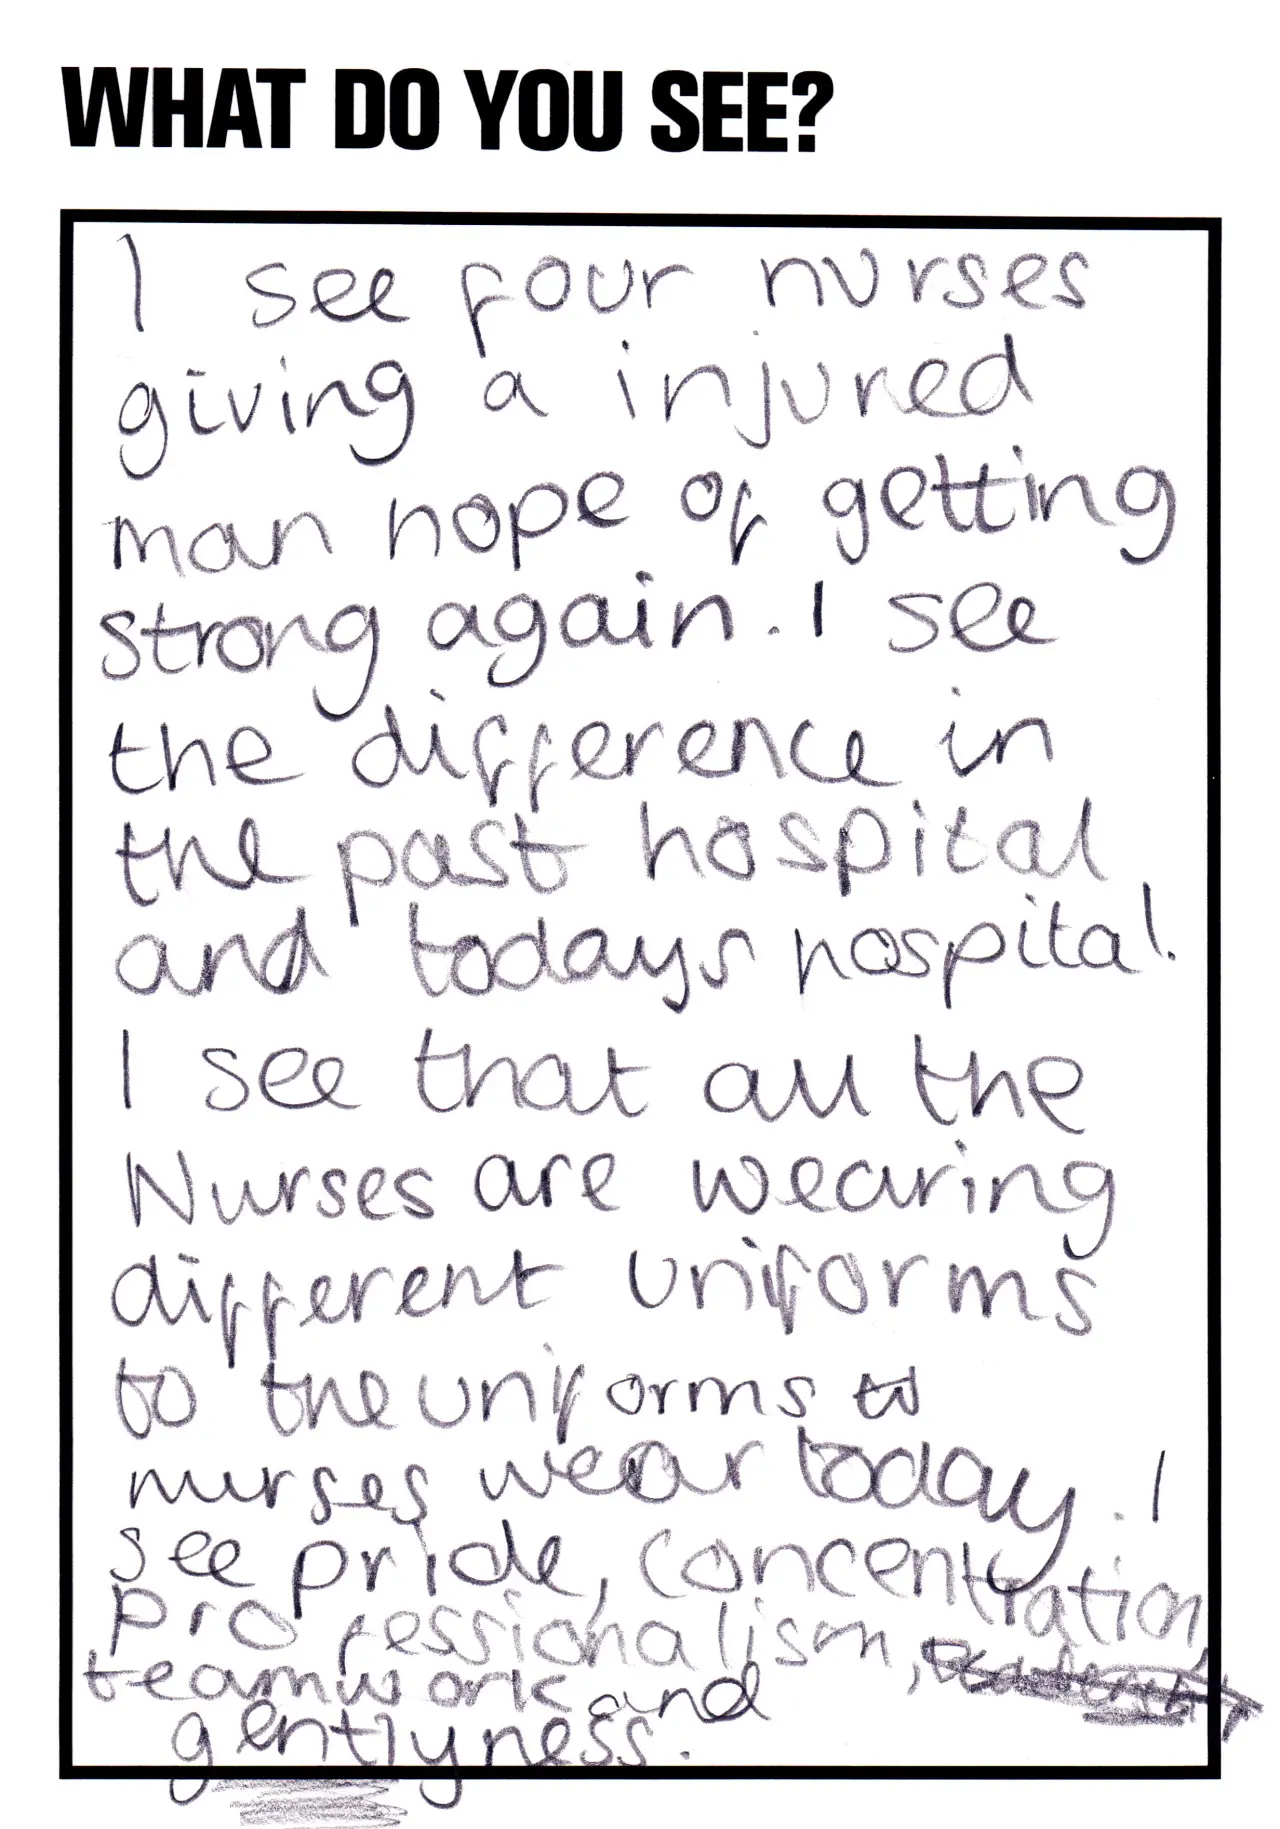 WHAT DO YOU SEE?
I see four nurses
giving a injured
man hope of getting
strong again. I see
the difference in
the past hospital
and todays hospital.
I see that all the
Nurses are wearing
different uniforms
to the uniforms to
nurses wear today. I
see pride, concentration
professionalism,
teamwork and
gentlyness.